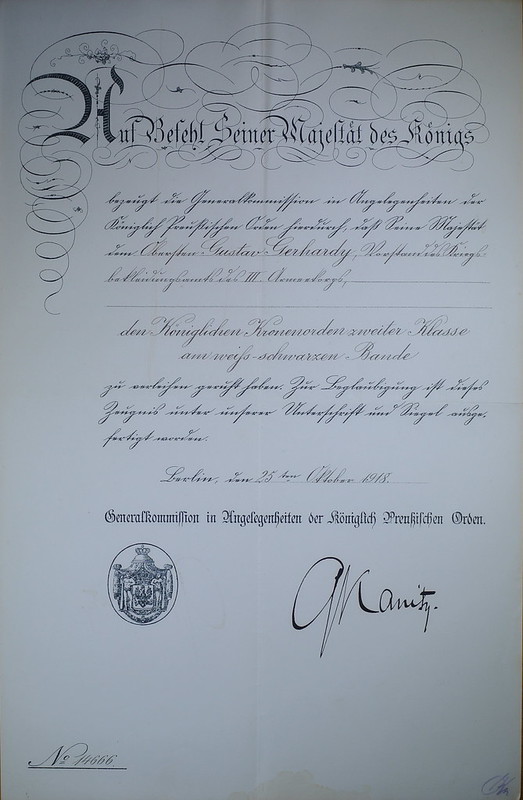 Auf Befehl Seiner Majestät des Königs
bezeugt die Generalkommission in Angelegenheiten der
Königlich Preußischen Orden hierdurch, daß Seine Majestät
dem Obersten Gustav Gerhardy, Vorstand des Kriegs-
bekleidungsamts des III. Armeekorps,
den Königlichen Kronenorden zweiter Klasse
am weiß-schwarzen Bande
zu verleihen geruht haben. Zur Beglaubigung ist dieses
Zeugnis unter unserer Unterschrift und Siegel ausge-
fertigt worden.
Berlin, den 25ten Oktober 1918.
Generalkommission in Angelegenheiten der Königlich Preußischen Orden.
Kanitz.
No 14666.